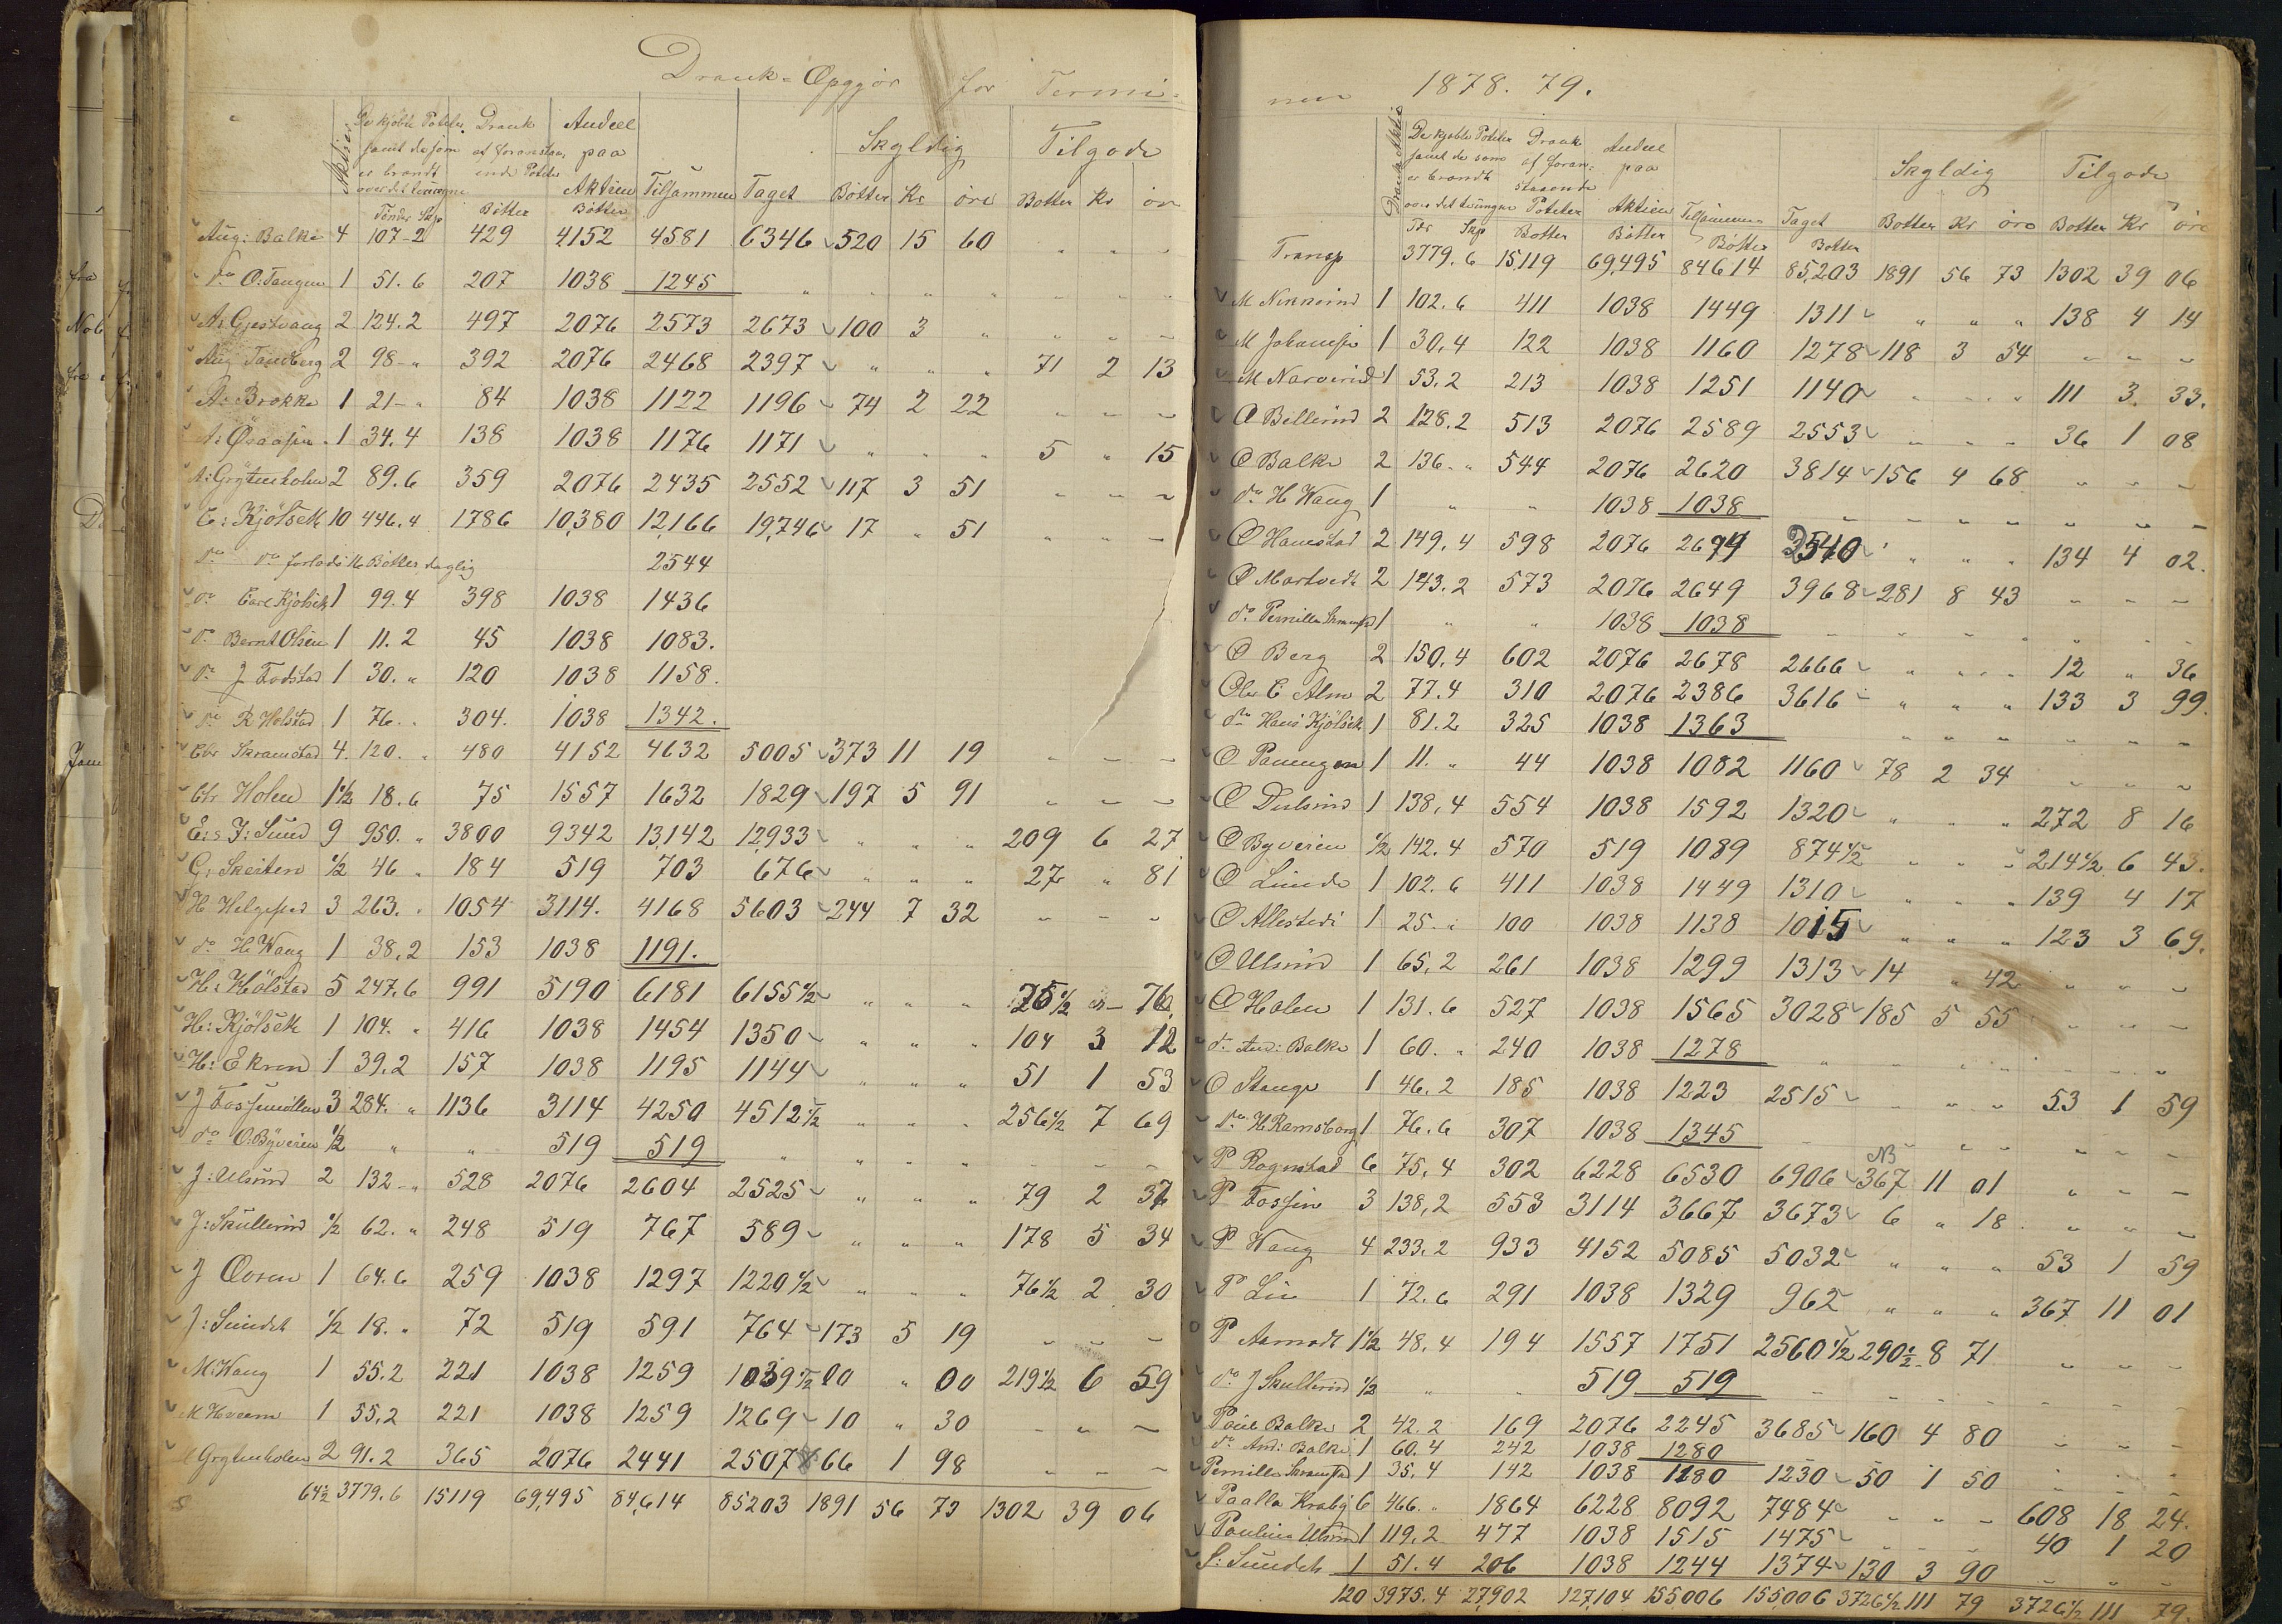 Drank-Opgjör for Termi-
Aktier De kjöbte Poteter samt de som er brændt over det tvungne Drank af foranstaa, ende Poteter Andeel paa Aktien Tilsammen Taget Skyldig Tilgode
Tönder Skp Bötter Bötter Bötter Kr öre Botter Kr öre
Aug: Balke 4 107-2 429 4152 4581 6346 520 15 60
do O. Tangen 1 51.6 207 1038 1245
A: Gjestvang 2 124.2 497 2076 2573 2673 100 3 "
Aug Tandberg 2 98-" 392 2076 2468 2397 " " " 71 2 13
A: Brokke 1 21-" 84 1038 1122 1196 74 2 22
A: 1 34.4 138 1038 1176 1171 " " " 5 " 15
A: Grytenholm 2 89.6 359 2076 2435 2552 117 3 51
C: Kjölset 10 446.4 1786 10,380 12,166 19,746 17 " 51
do do forlods 16 Bötter daglig 2544
do Carl Kjölset 1 99.4 398 1038 1436
do Bernt Olsen 1 11.2 45 1038 1083.
do J Fodstad 1 30. " 120 1038 1158.
do R Holstad 1 76. " 304. 1038 1342.
Chr Skramstad 4. 120. " 480 4152 4632 5005 373 11 19
Chr Holen 1½ 18.6 75 1557 1632 1829 197 5 91
E: & J: Sund 9 950. " 3800 9342 13,142 12,933 " " " 209 6 27
G, Skeiten ½ 46 " 184 519 703 676 " " " 27 " 81
H Helgestad 3 263. " 1054 3114. 4168 5603 244 7 32
do H Wang 1 38,2 153 1038 1191.
H: Holstad 5 247.6 991 5190 6181 6155½ " " " 75½ 76
H: Kjölset 1 104. " 416 1038 1454 1350 " " " 104 3 12
H: Ekren 1 39.2 157 1038 1195 1144 " " " 51 1 53
J Fossmöllen 3 284. " 1136 3114 4250 4512½ " " " 256½ 7 69
do O. Byverin ½ " " 519 519
J: Ulsrud 2 132-" 528 2076 2604 2525 " " " 79 2 37
J: Skullerud ½ 62. " 248 519 767 589 " " " 178 5 34
J Ovren 1 64.6 259 1038 1297 1220½ " " " 76½ 2 30
J: Sundet ½ 18. " 72 519 591 764 173 5 19
M: Wang 1 55.2 221 1038 1259 1039½ 00 " 00 219½ 6 59
M Hveem 1 55.2 221 1038 1259 1269 10 " 30
Grytenholm 2 91.2 365 2076 2441 2507 66 1 98
64½ 3779.6 15119 69,495 84,614 85203 1891 56 73 1302 39 06
nen 1878. 79.
Drank Aktie De kjøbte Poteter samt de som er brændt over det tvungne Drank af foran: staaende Poteter Andeel paa Aktien Tilsammen Taget Skyldig Tilgode
Tdr Skp Botter Bötter Bötter Botter Botter Kr öre Botter Kr öre
Transp 3779.6 15,119 69,495 84614 85,203 1891 56 73 1302 39 06
M 1 102.6 411 1038 1449 1311 " " " 138 4 14
M Johansen 1 30,4 122 1038 1160 1278 118 3 54
M Narverud 1 53.2 213 1038 1251 1140 " " " 111 3. 33.
O Billerud 2 128.2 513 2076 2589 2553 " " " 36 1 08
O Balke 2 136. " 544 2076 2620 3814 156 4 68
do H Wang 1 " " 1038 1038
O Hanestad 2 149,4 598 2076 2674 2540 " " " 134 4 02.
O Mortvedt 2 143.2 573 2076 2649 3968 281 8 43
do Pernille Skramstad 1 " " 1038 1038
O Berg 2 150.4 602 2076 2678 2666 " " " 12 " 36
Ole C Alm 2 77.4 310 2076 2386 3616 " " " 133 3 99.
do Hans Kjölset 1 81.2 325 1038 1363
O Panengen 1 11. " 44 1038 1082 1160 78 2 34
O Dulsrud 1 138,4 554 1038 1592 1320 " " " 272 8 16
O Byverin ½ 142.4 570 519 1089 874½ " " " 214½ 6 43.
O Lunde 1 102.6 411 1038 1449 1310 " " " 139 4 17
O Allestedi 1 25. " 100 1038 1138 1015 " " " 123 3 69.
O Ulsrud 1 65,2 261 1038 1299 1313 14 " 42
O Holen 1 131.6 527 1038 1565 3028 185 5 55
do And: Balke 1 60. " 240 1038 1278
O Stange 1 46.2 185 1038 1223 2515 " " " 53 1 59
do H Ramsborg 1 76.6 307 1038 1345
P Rognstad 6 75,4 302 6228 6530 6906 NB 367 11 01
P Fossen 3 138,2 553 3114 3667 3673 6 " 18
P Wang 4 233.2 933 4152 5085 5032 " " " 53 1 59
P Lie 1 72.6 291 1038 1329 962 " " " 367 11 01
P Aamodt 1½ 48,4 194 1557 1751 2560½ 290½ 8 71
do J Skullerud ½ " " 519 519
Poul Balke 2 42.2 169 2076 2245 3685 160 4 80
do And: Balke 1 60.4 242 1038 1280
Pernille Skramstad 1 35,4 142 1038 1180 1230 50 1 50
Paalla Kraby 6 466. " 1864 6228 8092 7484 " " " 608 18 24.
Pauline Ulsrud 1 119,2 477 1038 1515 1475 " " " 40 1 20
S: Sundet 1 51.4 206 1038 1244 1374 130 3 90
120 3975.4 27,902 127,104 155,006 155,006 3726½ 111 79 3726½ 111 79